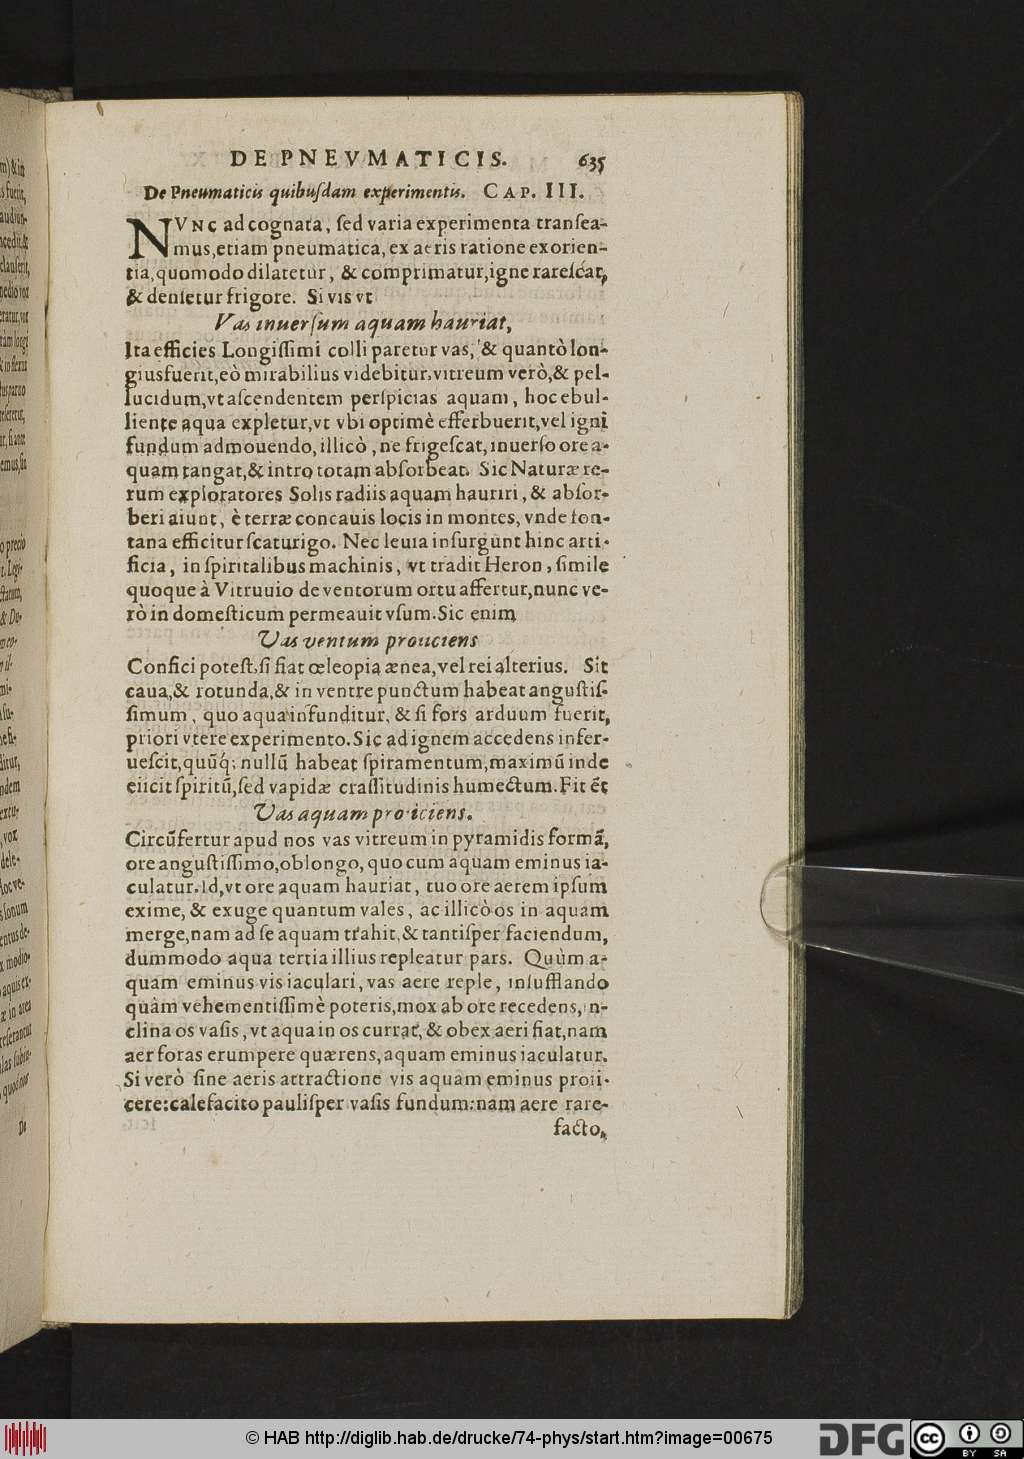 DE PNEVMATICIS. 635
De Pneumaticis quibuſdam experimentis. CAP. III.
NVNC ad cognata, ſed varia experimenta tranſea-
mus, etiam pneumatica, ex aeris ratione exorien-
tia, quomodo dilatetur, & comprimatur, igne rareſcat,
& denſetur frigore. Si vis vt
Vas inuerſum aquam hauriat,
Ita efficies Longiſſimi colli paretur vas, & quantò lon-
gius fuerit, eò mirabilius videbitur, vitreum verò, & pel-
lucidum, vt aſcendentem perſpicias aquam, hoc ebul-
liente aqua expletur, vt vbi optimè efferbuerit, vel igni
fundum admouendo, illicò, ne frigeſcat, inuerſo ore a-
quam tangat, & intro totam abſorbeat. Sic Naturæ re-
rum exploratores Solis radiis aquam hauriri, & abſor-
beri aiunt, è terræ concauis locis in montes, vnde fon-
tana efficitur ſcaturigo. Nec leuia inſurgunt hinc arti-
ficia, in ſpiritalibus machinis, vt tradit Heron, ſimile
quoque à Vitruuio de ventorum ortu affertur, nunc ve-
rò in domeſticum permeauit vſum. Sic enim
Vas ventum proiiciens
Confici poteſt, ſi fiat œleopia ænea, vel rei alterius. Sit
caua, & rotunda, & in ventre punctum habeat anguſtiſ-
ſimum, quo aqua infunditur, & ſi fors arduum fuerit,
priori vtere experimento. Sic ad ignem accedens infer-
ueſcit, quũq; nullũ habeat ſpiramentum, maximũ inde
eiicit ſpiritũ, ſed vapidæ craſſitudinis humectum. Fit &c̃
Vas aquam proiiciens.
Circũfertur apud nos vas vitreum in pyramidis formã,
ore anguſtiſſimo, oblongo, quo cum aquam eminus ia-
culatur. Id, vt ore aquam hauriat, tuo ore aerem ipſum
exime, & exuge quantum vales, ac illicò os in aquam
merge, nam ad ſe aquam trahit, & tantiſper faciendum,
dummodo aqua tertia illius repleatur pars. Quùm a-
quam eminus vis iaculari, vas aere reple, inſufflando
quàm vehementiſſimè poteris, mox ab ore recedens, in-
clina os vaſis, vt aqua in os currat, & obex aeri fiat, nam
aer foras erumpere quærens, aquam eminus iaculatur.
Si verò ſine aeris attractione vis aquam eminus proii-
cere: calefacito pauliſper vaſis fundum: nam aere rare-
facto,
© HAB http://diglib.hab.de/drucke/74-phys/start.htm?image=00675
DFG
cc BY SA